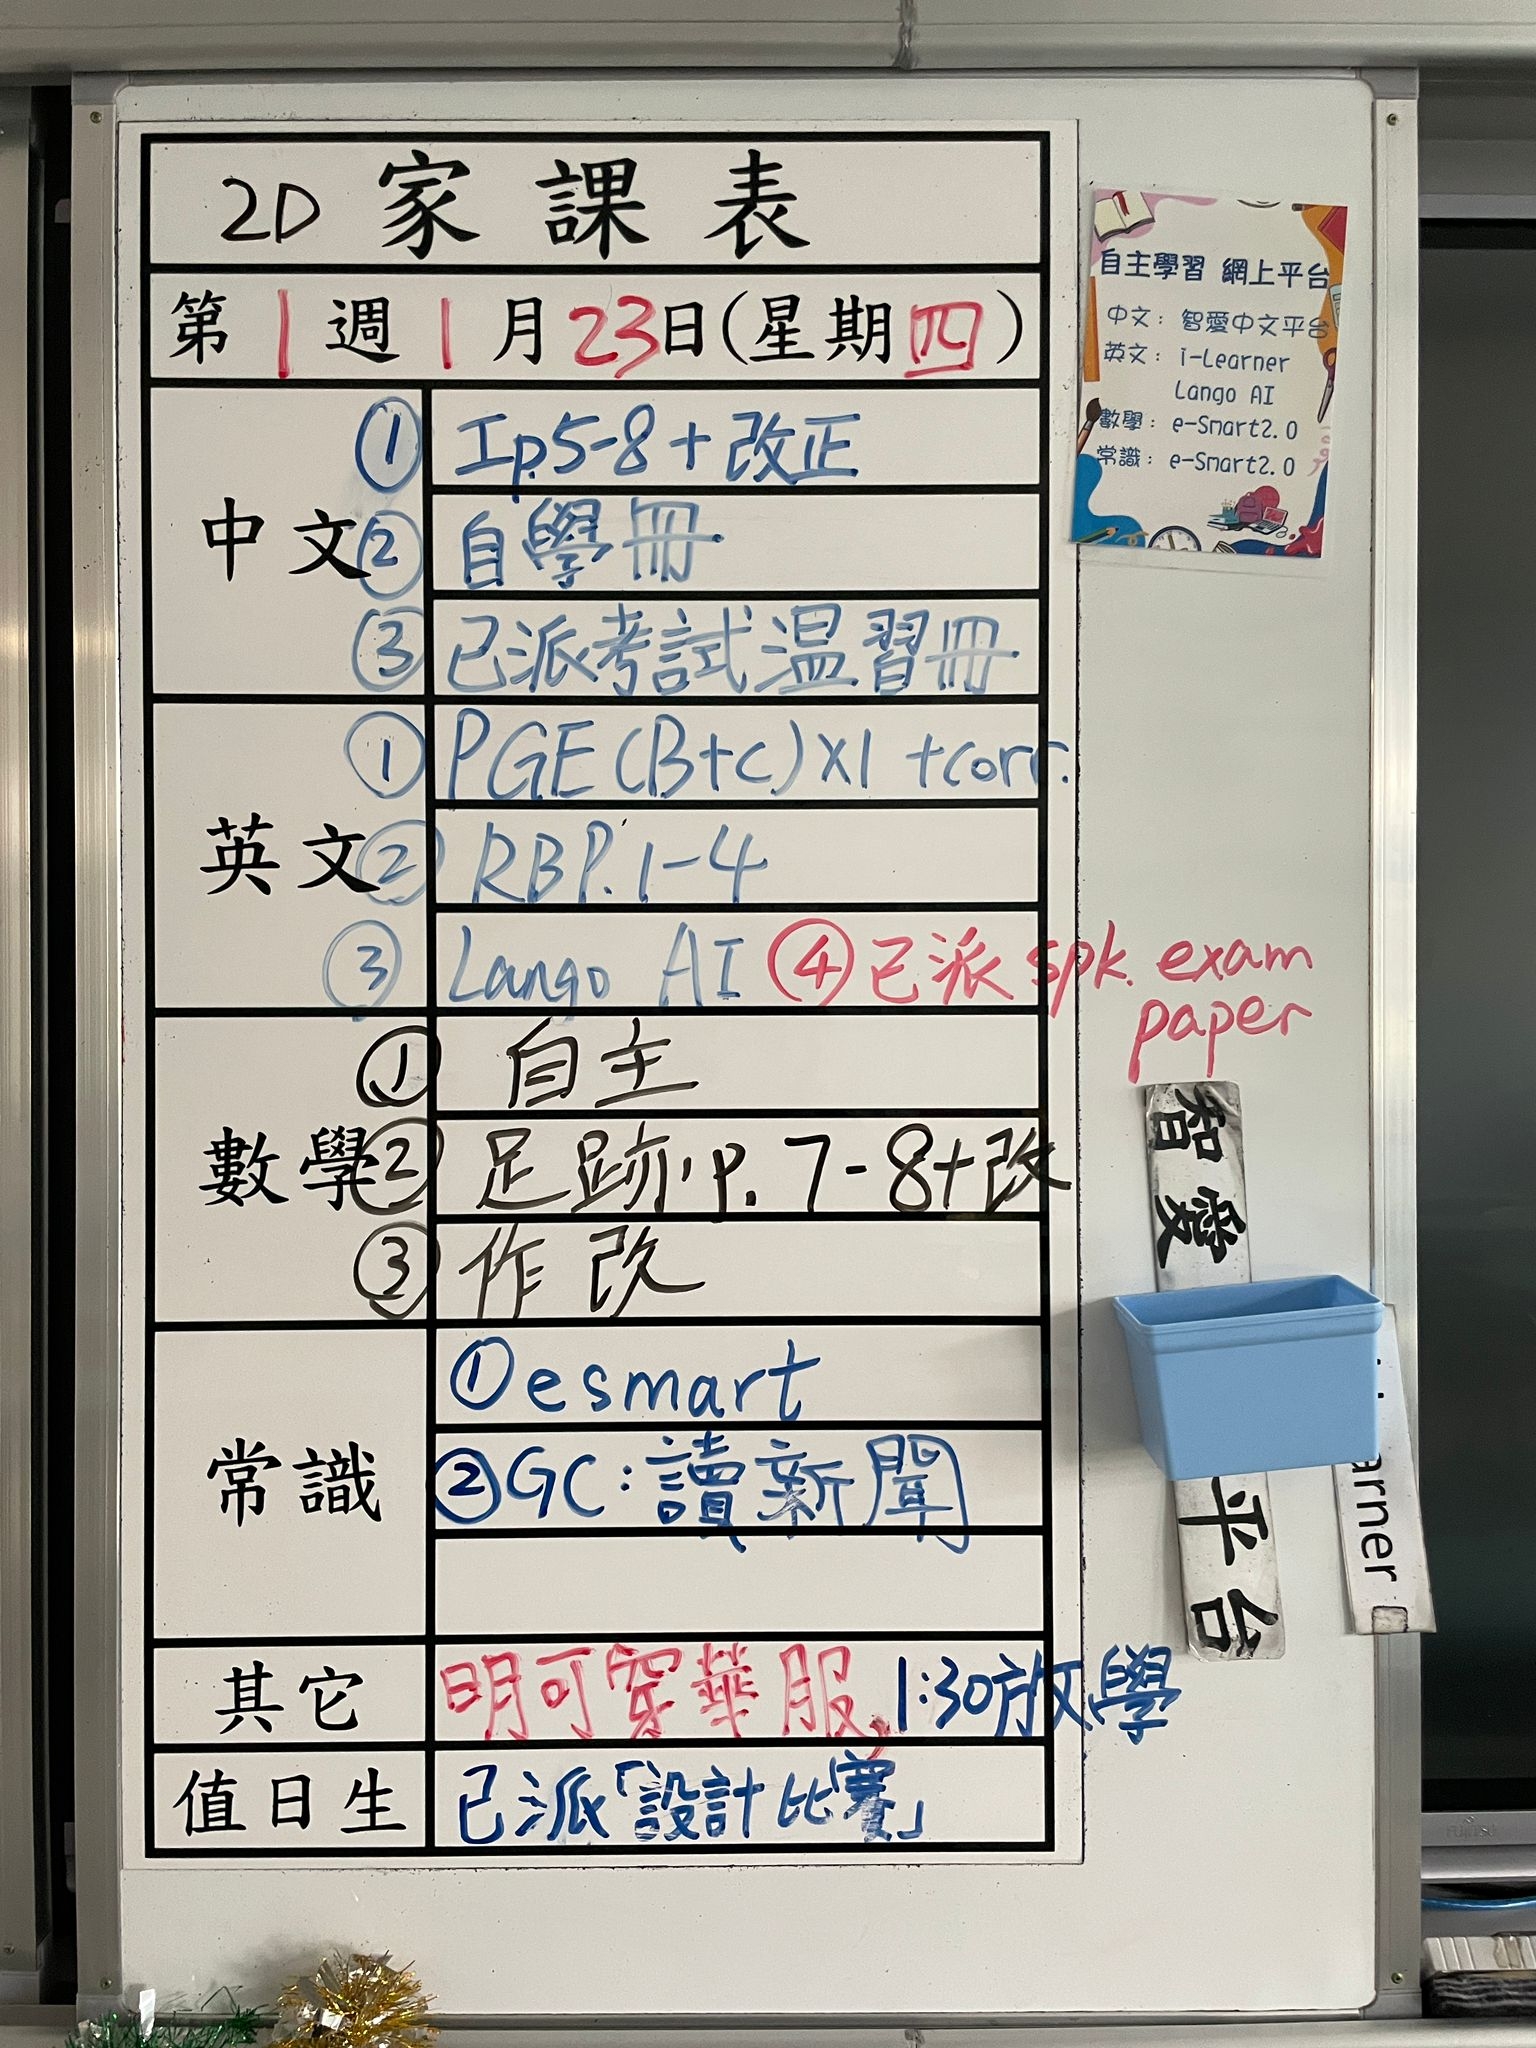 2D 家課表
第1週1月23日(星期四)
中文
① Ip.5-8+改正
② 自學冊
③ 已派考試温習冊
英文
① PGE(B+C)x1 +corr.
② RBP.1-4
③ Lango AI ④已派 spk. exam
paper
數學
① 自主
② 足跡.p.7-8+改
③ 作改
常識
①esmart
②GC:讀新聞
其它
明可穿華服,1:30放學
值日生
已派「設計比賽」
自主學習 網上平台
中文: 智愛中文平台
英文: i-Learner
Lango AI
數學: e-Smart2.0
常識: e-Smart2.0
智愛
平台
arner